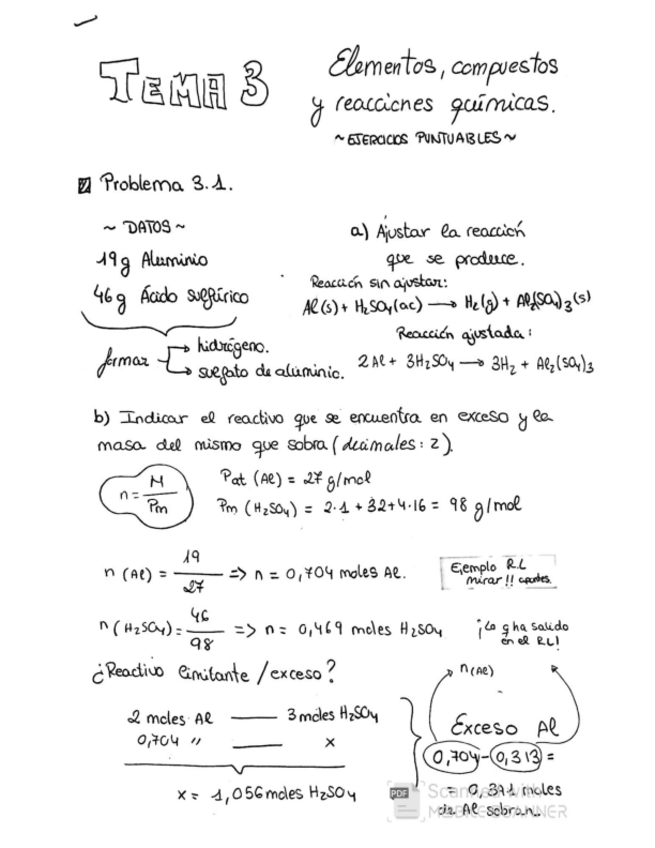 TEMA 3
Elementos, compuestos
y reacciones químicas.
~EJERCICIOS PUNTUABLES~
Problema 3.1.
~ DATOS ~
19g Aluminio
46g Ácido sulfúrico
formar → hidrógeno.
→ sulfato de aluminio.
a) Ajustar la reacción
que se produce.
Reacción sin ajustar:
Al(s) + H₂SO₄(ac) → H₂(g) + Al₂(SO₄)₃(s)
Reacción ajustada:
2Al + 3H₂SO₄ → 3H₂ + Al₂(SO₄)₃
b) Indicar el reactivo que se encuentra en exceso y la
masa del mismo que sobra (decimales: 2).
n = M / Pm
Pat (Al) = 27 g/mol
Pm (H₂SO₄) = 2·1 + 32 + 4·16 = 98 g/mol
n (Al) = 19 / 27 => n = 0,704 moles Al.
Ejemplo R.L
mirar!! apuntes.
n (H₂SO₄) = 46 / 98 => n = 0,469 moles H₂SO₄
¡Lo q ha salido
en el RL!
¿Reactivo limitante / exceso?
n(Al)
2 moles Al — 3 moles H₂SO₄
0,704 " — x
x = 1,056 moles H₂SO₄
Exceso Al
0,704 - 0,313 =
= 0,391 moles
de Al sobran..
PDF Scanned with
MOBILE SCANNER